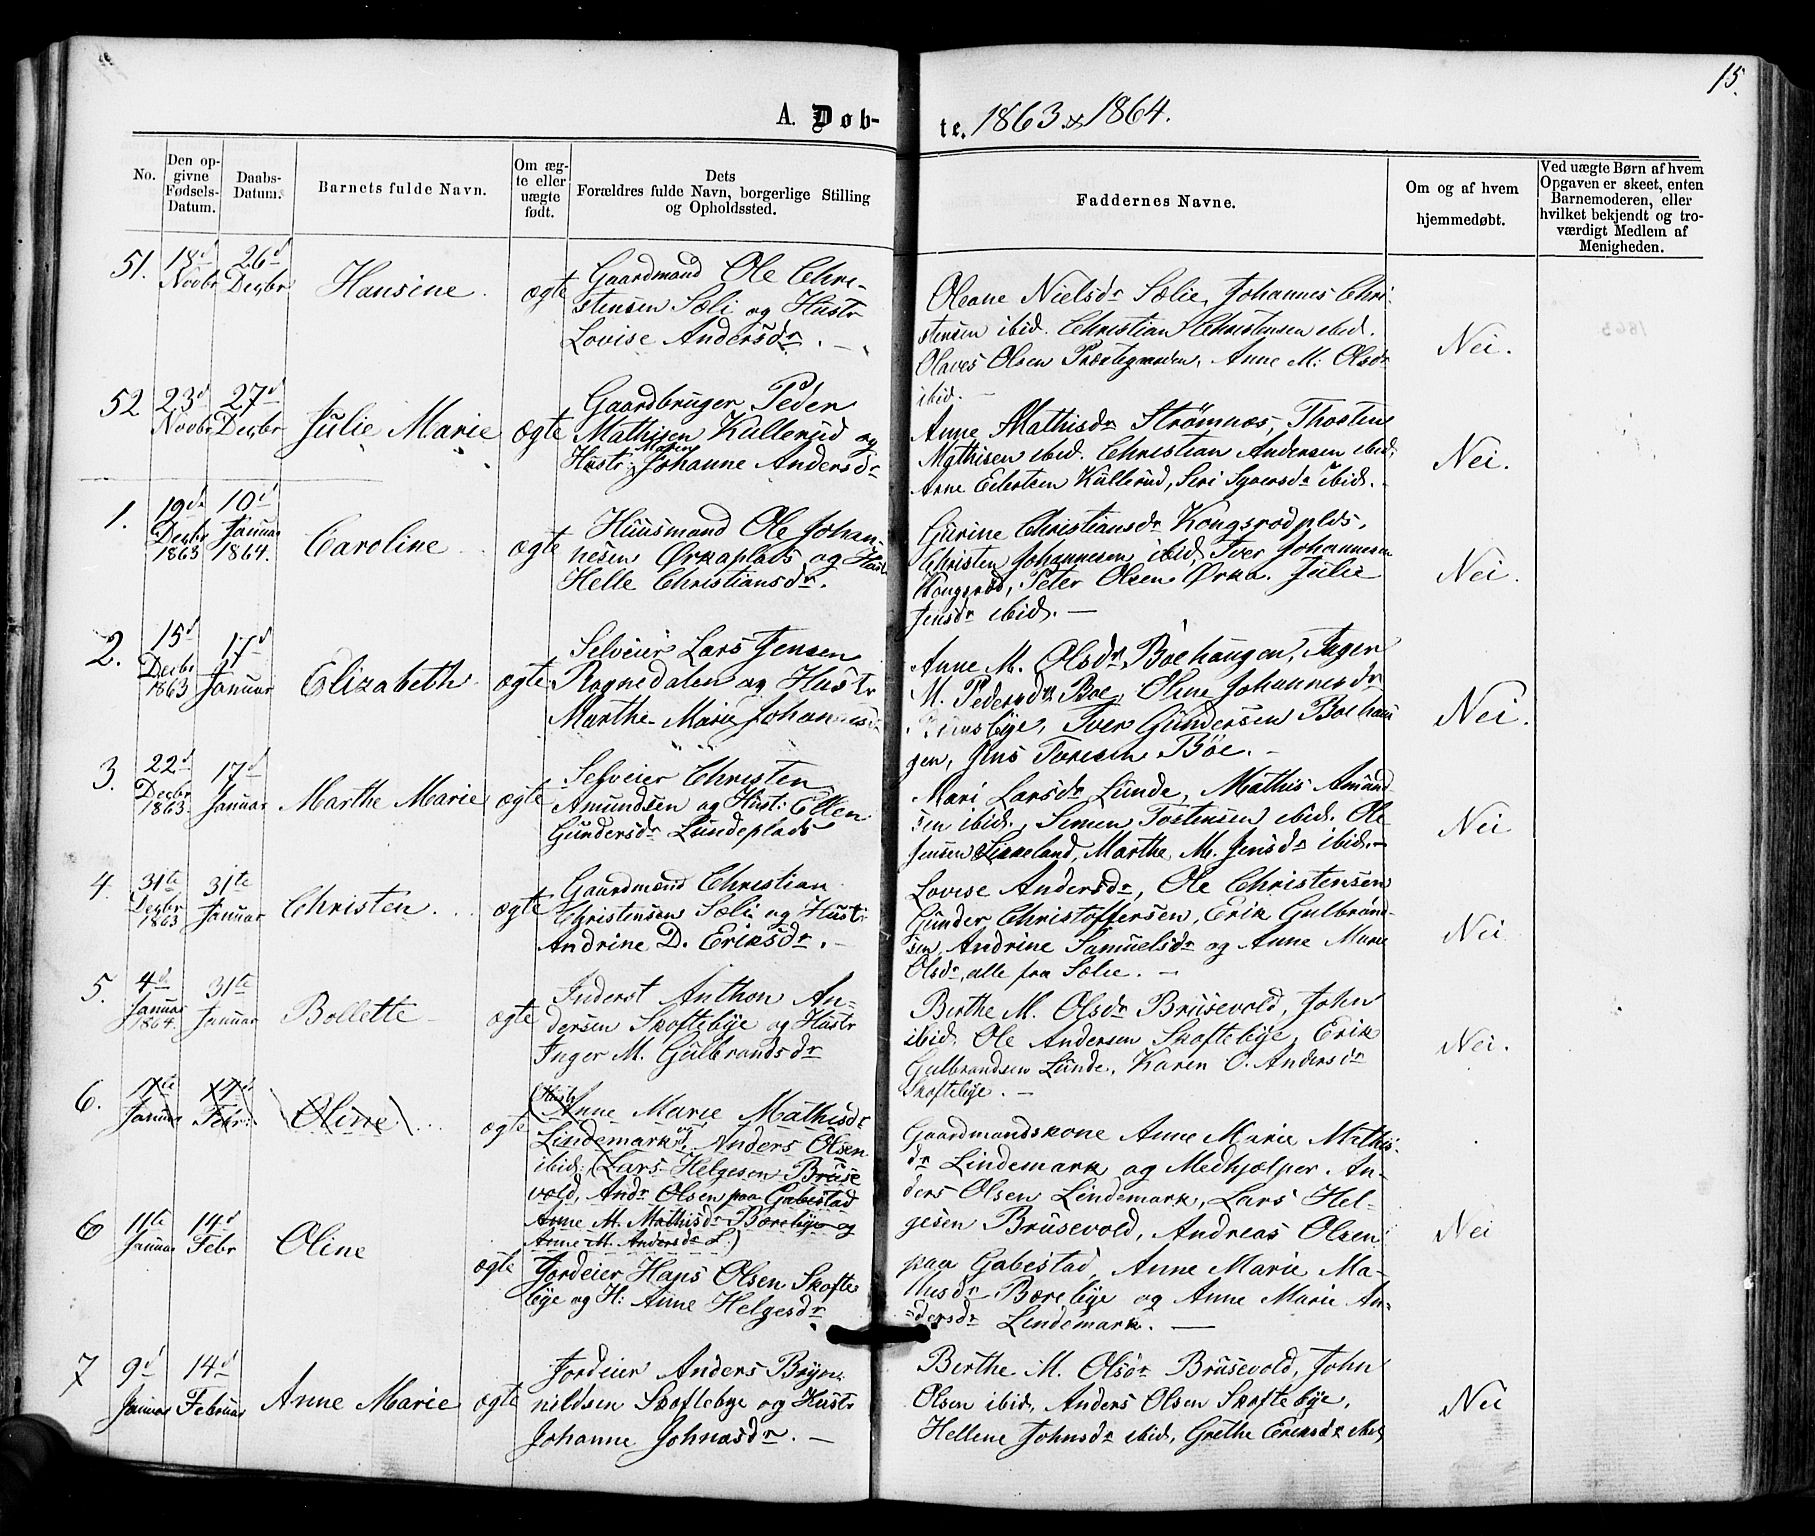 15.
A. Døb-
te. 1863 & 1864.
No.
Den op-
givne
Fødsels-
Datum.
Daabs-
Datum.
Barnets fulde Navn.
Om æg-
te eller
uægte
født.
Dets
Forældres fulde Navn, borgerlige Stilling
og Opholdssted.
Faddernes Navne.
Om og af hvem
hjemmedøbt.
Ved uægte Børn af hvem
Opgaven er skeet, enten
Barnemoderen, eller
hvilket bekjendt og tro-
værdigt Medlem af
Menigheden.
51.
18d
Novbr
26d
Decbr
Hansine
ægte
Gaardmand Ole Chri-
stensen Sæli og Hustr
Lovise Andersdr. —
Oleane Nielsdr Sælie, Johannes Chri-
stensen ibid. Christian Christensen ibid.
Olaves Olsen Præstegaarden, Anne M. Olsdr
ibid. —
Nei.
52
23d
Novbr
27d
Decbr
Julie Marie
ægte
Gaardbruger Peder
Mathisen Kullerud og
Hustr: Maren Johanne Andersdr
Anne Mathisdr Strømnæs, Thosten
Mathisen ibid. Christian Andersen ibid.
Arne Eilertsen Kullerud, Siri Sjversdr ibid. —
Nei.
1.
19de
Decbr
1863
10d
Januar
1864.
Caroline
ægte
Huusmand Ole Johan-
nesen Ørkaplads og Hustr
Helle Christiansdr.
Gurine Christiansdr Kongsrødplds,
Christen Johannesen ibid, Iver Johannesen
Kongsrød, Peter Olsen Ørka. Julie
Jensdr ibid. —
Nei.
2.
15d
Decbr
1863
17d
Januar
Elizabeth
ægte
Selveier Lars Jensen
Rognedalen og Hustr
Marthe Marie Johannesdr
Anne M. Olsdr Böehaugen, Inger
M. Pedersdr Boe, Oline Johannesdr
Iver Gundersen Boehau
gen, Jens Toresen Böe. —
Nei.
3.
22d
Decbr
1863.
17d
Januar
Marthe Marie
ægte
Selveier Christen
Amundsen og Hust: Ellen
Gundersdr Lundeplads
Mari Larsdr Lunde, Mathis Amund-
sen ibid. Simen Tostensen ibid. Ole
Jensen Likkeland, Marthe M. Jensdr ibid. —
Nei
4.
31te
Decbr
1863
31te
Januar
Christen
ægte
Gaardmand Christian
Christensen Sæli og Hustr
Andrine D. Eriksdr. —
Lovise Andersdr, Ole Christensen
Gunder Christoffersen, Erik Gulbrand-
sen, Andrine Samuelsdr og Anne Marie
Olsdr, alle fra Sælie. —
Nei
5.
4d
Januar
1864
31te
Januar
Bollette
ægte
Inderst Anthon An-
dersen Skoftebye og Hustr
Inger M. Gulbrandsdr
Berthe M. Olsdr Brusevold, John
ibid. Ole Andersen Skoftebye, Erik
Gulbrandsen Lunde, Karen O. Andersdr
Skoftebye. —
Nei.
6.
11te
Januar
14d
Febr:
Oline
ægte
(Hustr Anne Marie Mathisdr
Lindemark og Anders Olsen
ibid. (Lars Helgesen Bruse
vold, Andr Olsen paa Gabestad
Anne M. Mathisdr Børebye og
Anne M. Andersdr L.)
6
11te
Januar
14d
Febr
Oline
ægte
Jordeier Hans Olsen Skofte
bye og H: Anne Helgesdr
Gaardmandskone Anne Marie Mathis-
dr Lindemark og Medhjælper An-
ders Olsen Lindemark, Lars Hel-
gesen Brusevold, Andreas Olsen
paa Gabestad, Anne Marie Ma-
thisdr Børebye og Anne Marie An-
dersdr Lindemark. —
Nei
7
9d
Januar
14d
Februar
Anne Marie
ægte
Jordeier Anders Bryn-
nildsen Skoftebye og Hustr
Johanne Johnasdr. —
Berthe M. Olsdr Brusevold, John
Olsen ibid, Anders Olsen Skoftebye,
Hellene Johnsdr ibid, Grethe Eriksdr ibid,
Nei